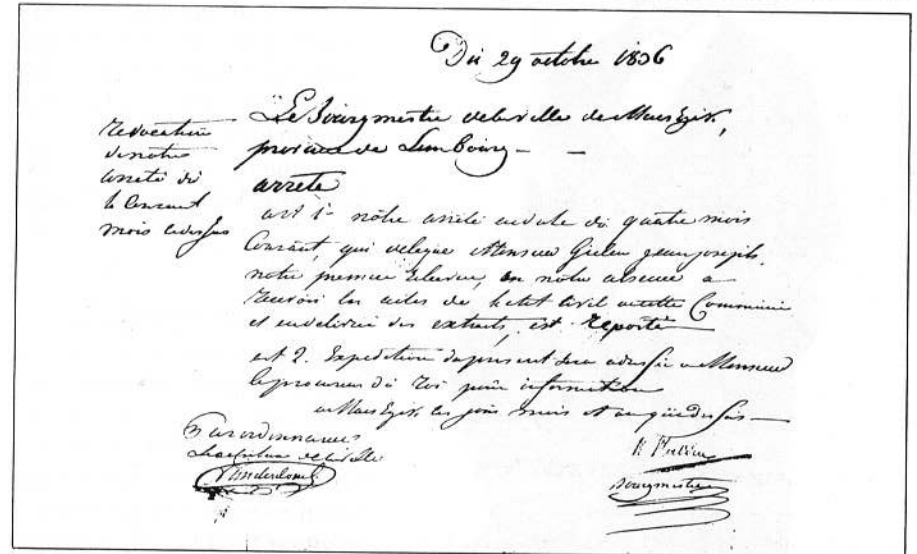 Du 29 octobre 1836
Revocation
de notre
arreté du
4 Courant
mois cidessus
Le Bourgmestre de la ville de MaesEyck,
province de Limbourg - -
arrete
art 1 notre arrêté en date du quatre mois
Courant, qui delegue Monsieur Gielen jean joseph,
notre premier Echevin, en notre absence a
recevoir les actes de l'etat civil de cette Commune
et en delivrer des extraits, est reporté
art 2. Expedition du present sera adressée a Monsieur
le procureur du Roi pour information
a MaesEyck les jour, mois et an que dessus
par ordonnance
de la ville
Vanderdonck
Bourgmestre